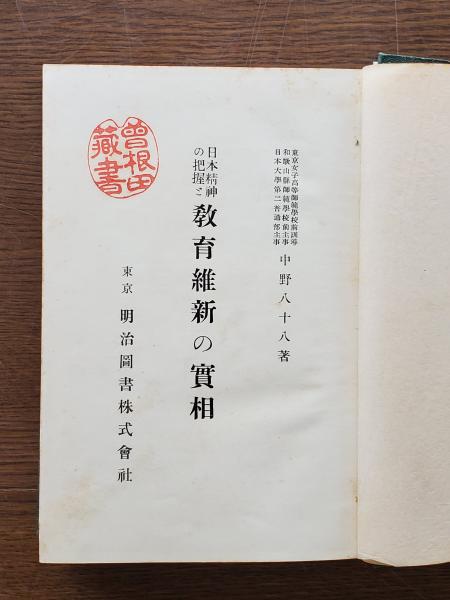 東京女子高等師範學校前訓導
和歌山縣師範學校前主事
日本大學第二普通部主事
中野八十八著
日本精神
の把握と
教育維新の實相
東京 明治圖書株式會社
曾根田
藏書